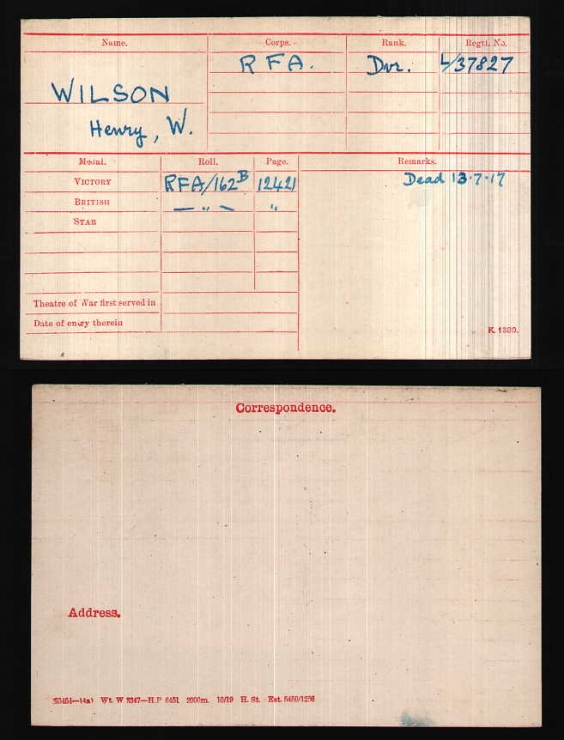 Name. Corps. Rank. Regtl. No.
WILSON R F A. Dvr. L/37827
Henry, W.
Medal. Roll. Page. Remarks.
VICTORY RFA/162B 12421 Dead 13.7.17
BRITISH — „ — „
STAR
Theatre of War first served in
Date of entry therein
K. 1380.
Correspondence.
Address.
Wt. W 5347—H.P 6451 2000m. 10/19 H. St.